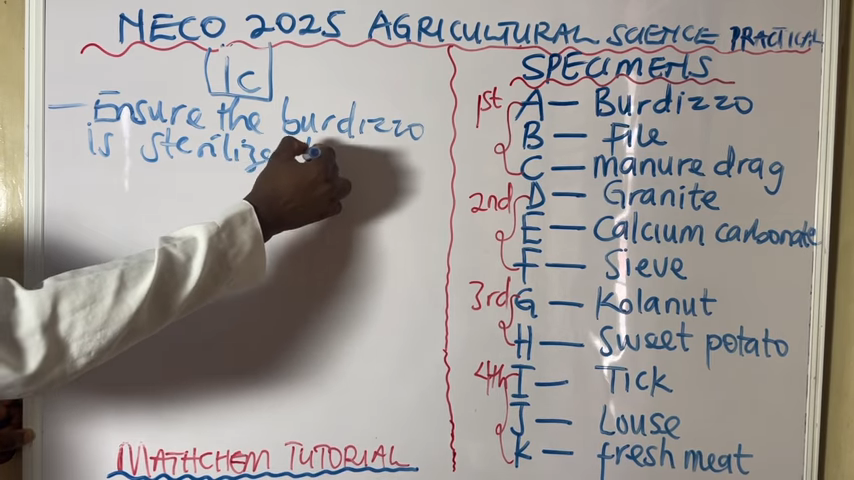 NECO 2025 AGRICULTURAL SCIENCE PRACTICAL
1c
— Ensure the burdizzo
is sterilize
SPECIMENS
1st A — Burdizzo
B — File
C — manure drag
2nd D — Granite
E — Calcium carbonate
F — Sieve
3rd G — Kolanut
H — Sweet potato
4th I — Tick
J — Louse
K — fresh meat
MATHCHEM TUTORIAL